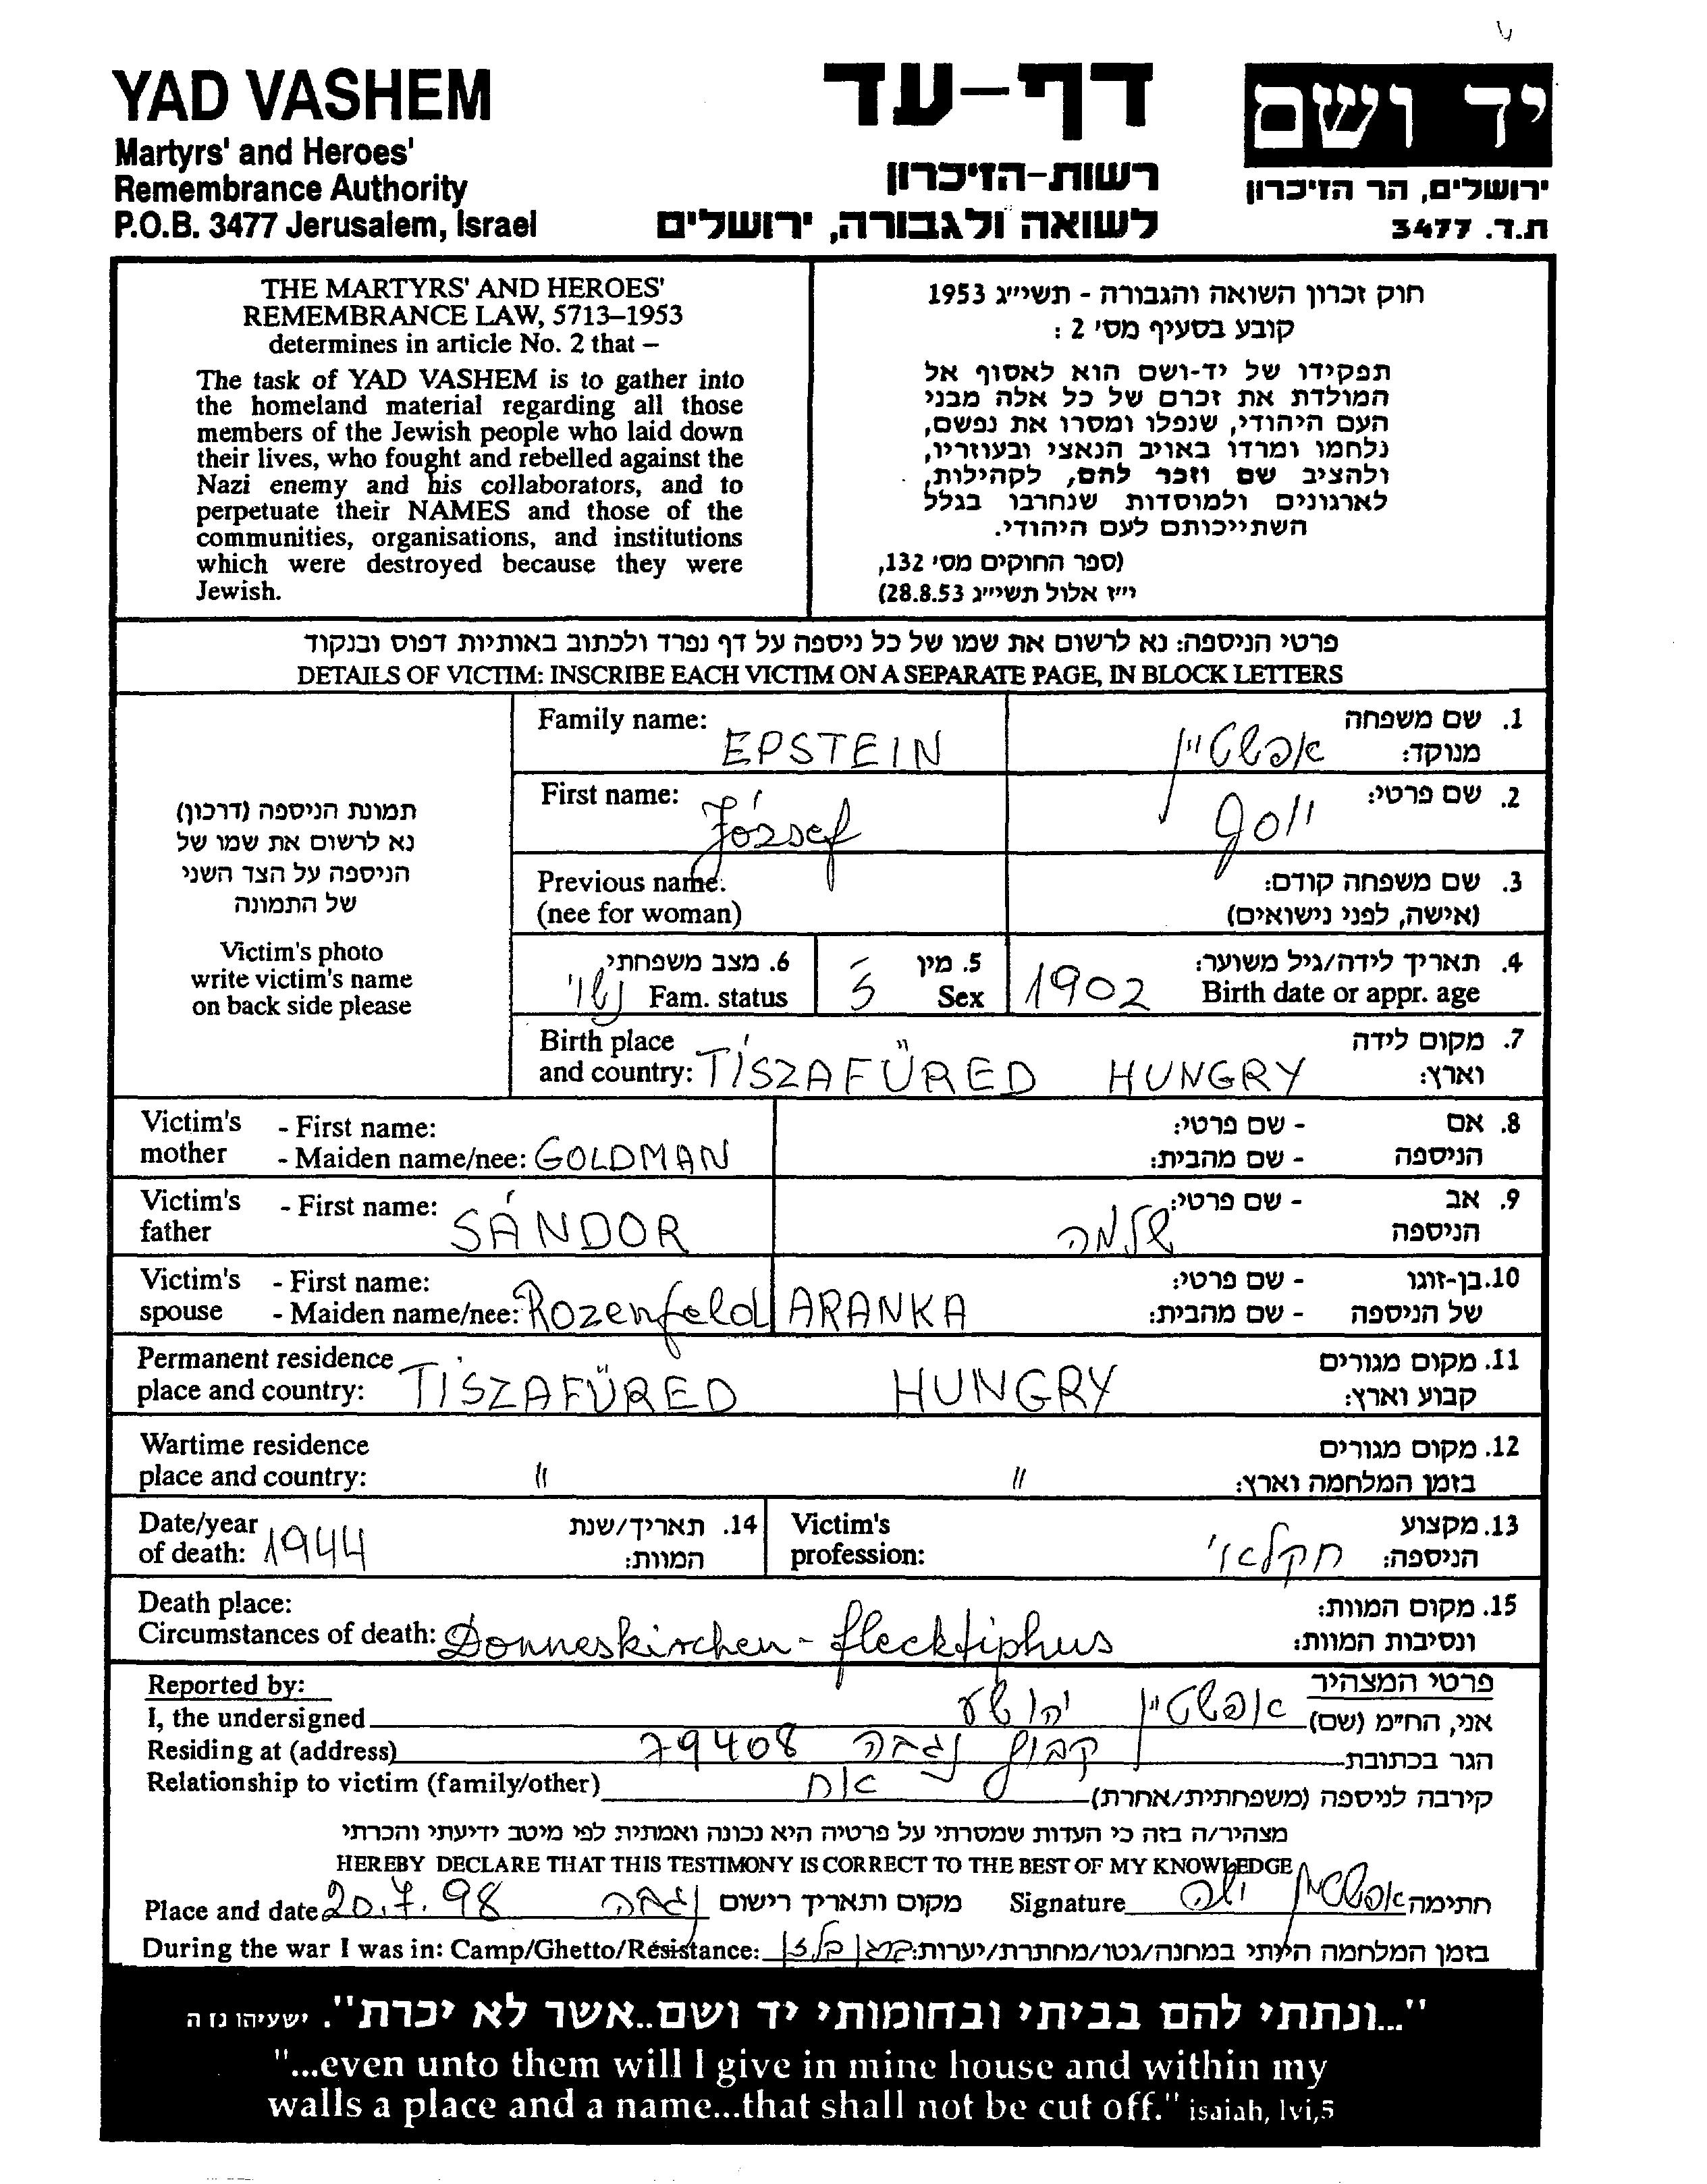 YAD VASHEM
Martyrs' and Heroes'
Remembrance Authority
P.O.B. 3477 Jerusalem, Israel
דף-עד
רשות-הזיכרון
לשואה ולגבורה, ירושלים
יד ושם
ירושלים, הר הזיכרון
ת.ד. 3477
THE MARTYRS' AND HEROES'
REMEMBRANCE LAW, 5713–1953
determines in article No. 2 that –
The task of YAD VASHEM is to gather into
the homeland material regarding all those
members of the Jewish people who laid down
their lives, who fought and rebelled against the
Nazi enemy and his collaborators, and to
perpetuate their NAMES and those of the
communities, organisations, and institutions
which were destroyed because they were
Jewish.
חוק זכרון השואה והגבורה - תשי״ג 1953
קובע בסעיף מס' 2 :
תפקידו של יד-ושם הוא לאסוף אל
המולדת את זכרם של כל אלה מבני
העם היהודי, שנפלו ומסרו את נפשם,
נלחמו ומרדו באויב הנאצי ובעוזריו,
ולהציב שם וזכר להם, לקהילות,
לארגונים ולמוסדות שנחרבו בגלל
השתייכותם לעם היהודי.
(ספר החוקים מס' 132,
י״ז אלול תשי״ג 28.8.53)
פרטי הניספה: נא לרשום את שמו של כל ניספה על דף נפרד ולכתוב באותיות דפוס ובנקוד
DETAILS OF VICTIM: INSCRIBE EACH VICTIM ON A SEPARATE PAGE, IN BLOCK LETTERS
תמונת הניספה (דרכון)
נא לרשום את שמו של
הניספה על הצד השני
של התמונה
Victim's photo
write victim's name
on back side please
Family name: EPSTEIN אפשטיין 1. שם משפחה
מנוקד:
First name: József יוסף 2. שם פרטי:
Previous name: 3. שם משפחה קודם:
(nee for woman) (אישה, לפני נישואים)
6. מצב משפחתי 5. מין 4. תאריך לידה/גיל משוער:
נשוי Fam. status ז Sex 1902 Birth date or appr. age
Birth place 7. מקום לידה
and country: TÍSZAFÜRED HUNGRY וארץ:
Victim's - First name: - שם פרטי: 8. אם
mother - Maiden name/nee: GOLDMAN - שם מהבית: הניספה
Victim's - First name: SÁNDOR שלמה - שם פרטי: 9. אב
father הניספה
Victim's - First name: - שם פרטי: 10.בן-זוגו
spouse - Maiden name/nee: Rozenfeld ARANKA - שם מהבית: של הניספה
Permanent residence 11. מקום מגורים
place and country: TÍSZAFÜRED HUNGRY קבוע וארץ:
Wartime residence 12. מקום מגורים
place and country: " " בזמן המלחמה וארץ:
Date/year 14. תאריך/שנת Victim's 13.מקצוע
of death: 1944 המוות: profession: חקלאי הניספה:
Death place: 15. מקום המוות:
Circumstances of death: Donneskirchen - flecktiphus ונסיבות המוות:
Reported by: פרטי המצהיר
I, the undersigned יהושע אפשטיין אני, הח״מ (שם)
Residing at (address) 79408 קבוץ נגבה הגר בכתובת
Relationship to victim (family/other) אח קירבה לניספה (משפחתית/אחרת)
מצהיר/ה בזה כי העדות שמסרתי על פרטיה היא נכונה ואמתית לפי מיטב ידיעתי והכרתי
HEREBY DECLARE THAT THIS TESTIMONY IS CORRECT TO THE BEST OF MY KNOWLEDGE
Place and date 20.7.98 נגבה מקום ותאריך רישום Signature אפשטיין חתימה
During the war I was in: Camp/Ghetto/Resistance: ברגן בלזן בזמן המלחמה הייתי במחנה/גטו/מחתרת/יערות:
"...ונתתי להם בביתי ובחומותי יד ושם..אשר לא יכרת". ישעיהו נו ה
"...even unto them will I give in mine house and within my
walls a place and a name...that shall not be cut off." isaiah, lvi,5